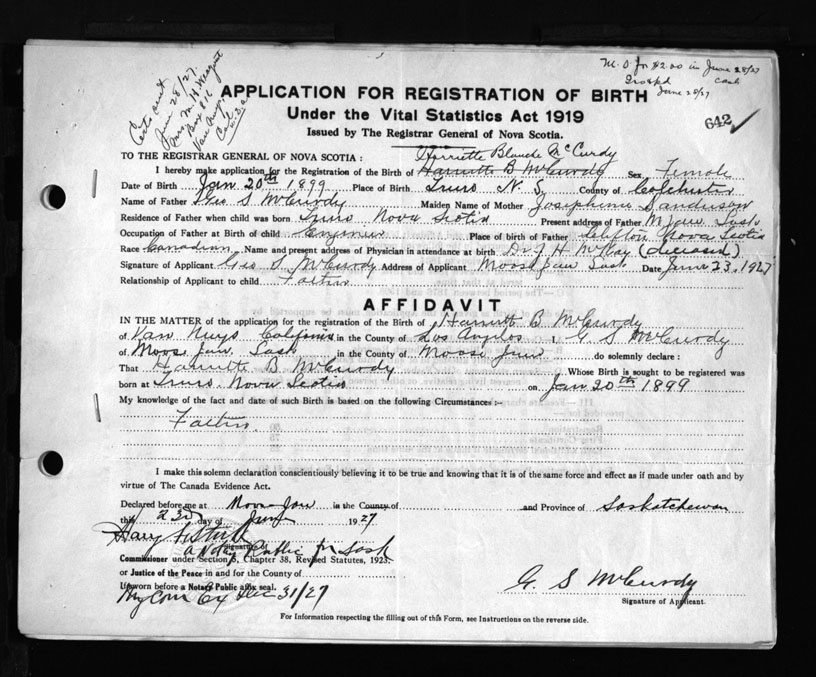 M.O. for $2.00 in June 28/27
cash
June 28/27
642 ✓
Cert sent
June 28/27.
Mrs M. H.
Box 816
Van Nuys
Cal.
U.S.a.
APPLICATION FOR REGISTRATION OF BIRTH
Under the Vital Statistics Act 1919
Issued by The Registrar General of Nova Scotia.
TO THE REGISTRAR GENERAL OF NOVA SCOTIA :
Harriette Blanche McCurdy
I hereby make application for the Registration of the Birth of Harriette B McCurdy Sex Female
Date of Birth Jan 20th 1899 Place of Birth Truro N.S. County of Colchester
Name of Father Geo S McCurdy Maiden Name of Mother Josephine Sanderson
Residence of Father when child was born Truro Nova Scotia Present address of Father M Jaw Sask
Occupation of Father at Birth of child Engineer Place of birth of Father Clifton Nova Scotia
Race Canadian Name and present address of Physician in attendance at birth Dr J H McKay (deceased)
Signature of Applicant Geo S McCurdy Address of Applicant Moose Jaw Sask Date June 23, 1927
Relationship of Applicant to child Father
AFFIDAVIT
IN THE MATTER of the application for the registration of the Birth of Harriette B McCurdy
of Van Nuys California in the County of Los Angeles I, G S McCurdy
of Moose Jaw, Sask in the County of Moose Jaw do solemnly declare :
That Harriette B McCurdy Whose Birth is sought to be registered was
born at Truro. Nova Scotia on Jan 20th 1899
My knowledge of the fact and date of such Birth is based on the following Circumstances :-
Father.
I make this solemn declaration conscientiously believing it to be true and knowing that it is of the same force and effect as if made under oath and by
virtue of The Canada Evidence Act.
Declared before me at Moose Jaw in the County of and Province of Saskatchewan
this 23rd day of June 1927
Harry
Signature of
a Notary Public for Sask
Commissioner under Section 5, Chapter 38, Revised Statutes, 1923.
or Justice of the Peace in and for the County of
If sworn before a Notary Public affix seal.
My Com Ex Dec 31/27
G. S McCurdy
Signature of Applicant.
For Information respecting the filling out of this Form, see Instructions on the reverse side.